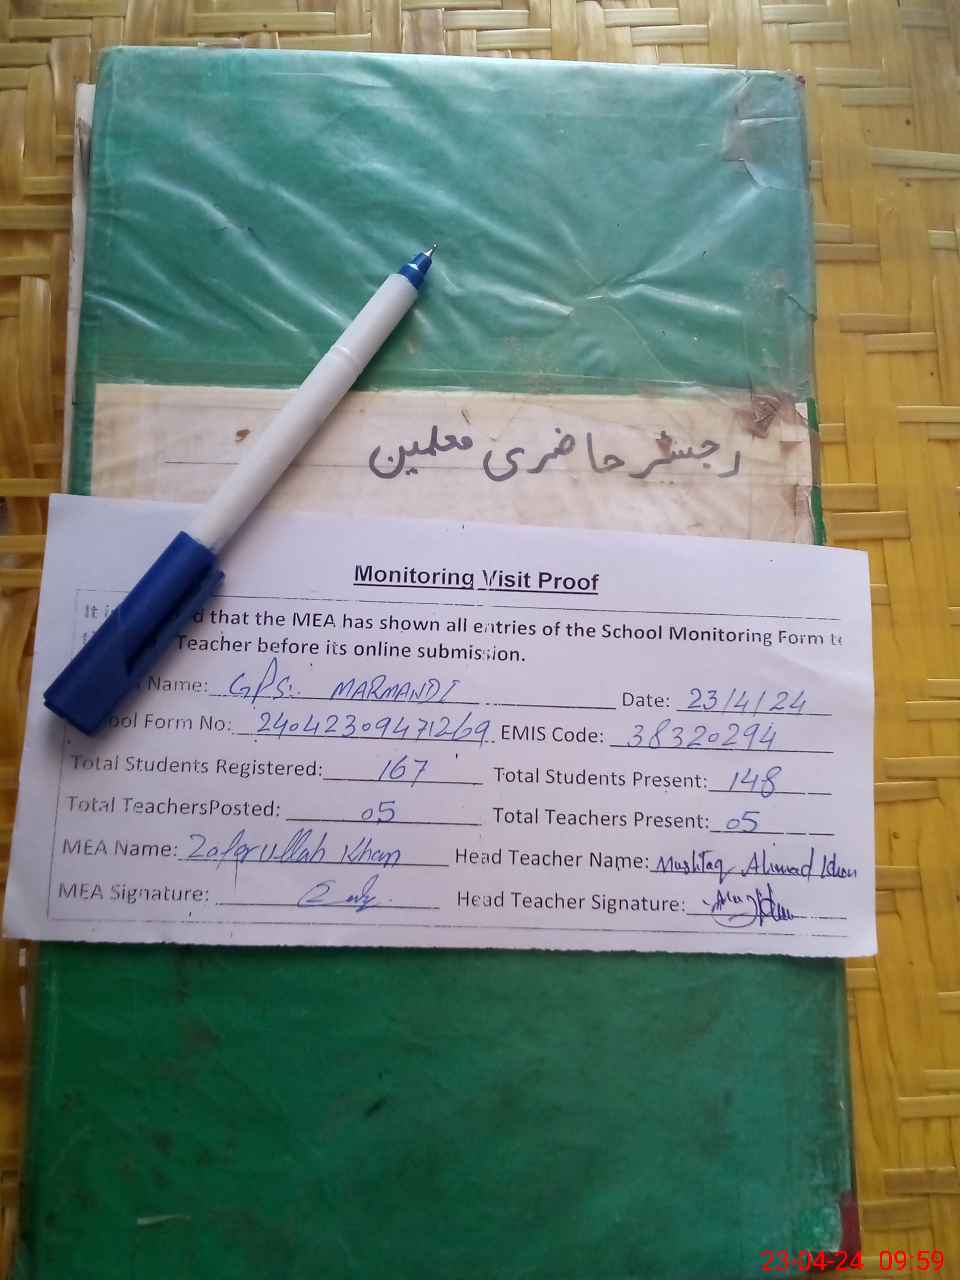 رجسٹر حاضری معلمین
Monitoring Visit Proof
It i d that the MEA has shown all entries of the School Monitoring Form to
Teacher before its online submission.
Name: GPS: MARMANDI Date: 23/4/24
ool Form No: 24042309471269 EMIS Code: 38320294
Total Students Registered: 167 Total Students Present: 148
Total TeachersPosted: 05 Total Teachers Present: 05
MEA Name: Zafar ullah Khan Head Teacher Name: Mushtaq Ahmad Khan
MEA Signature: Head Teacher Signature:
23-04-24 09:59